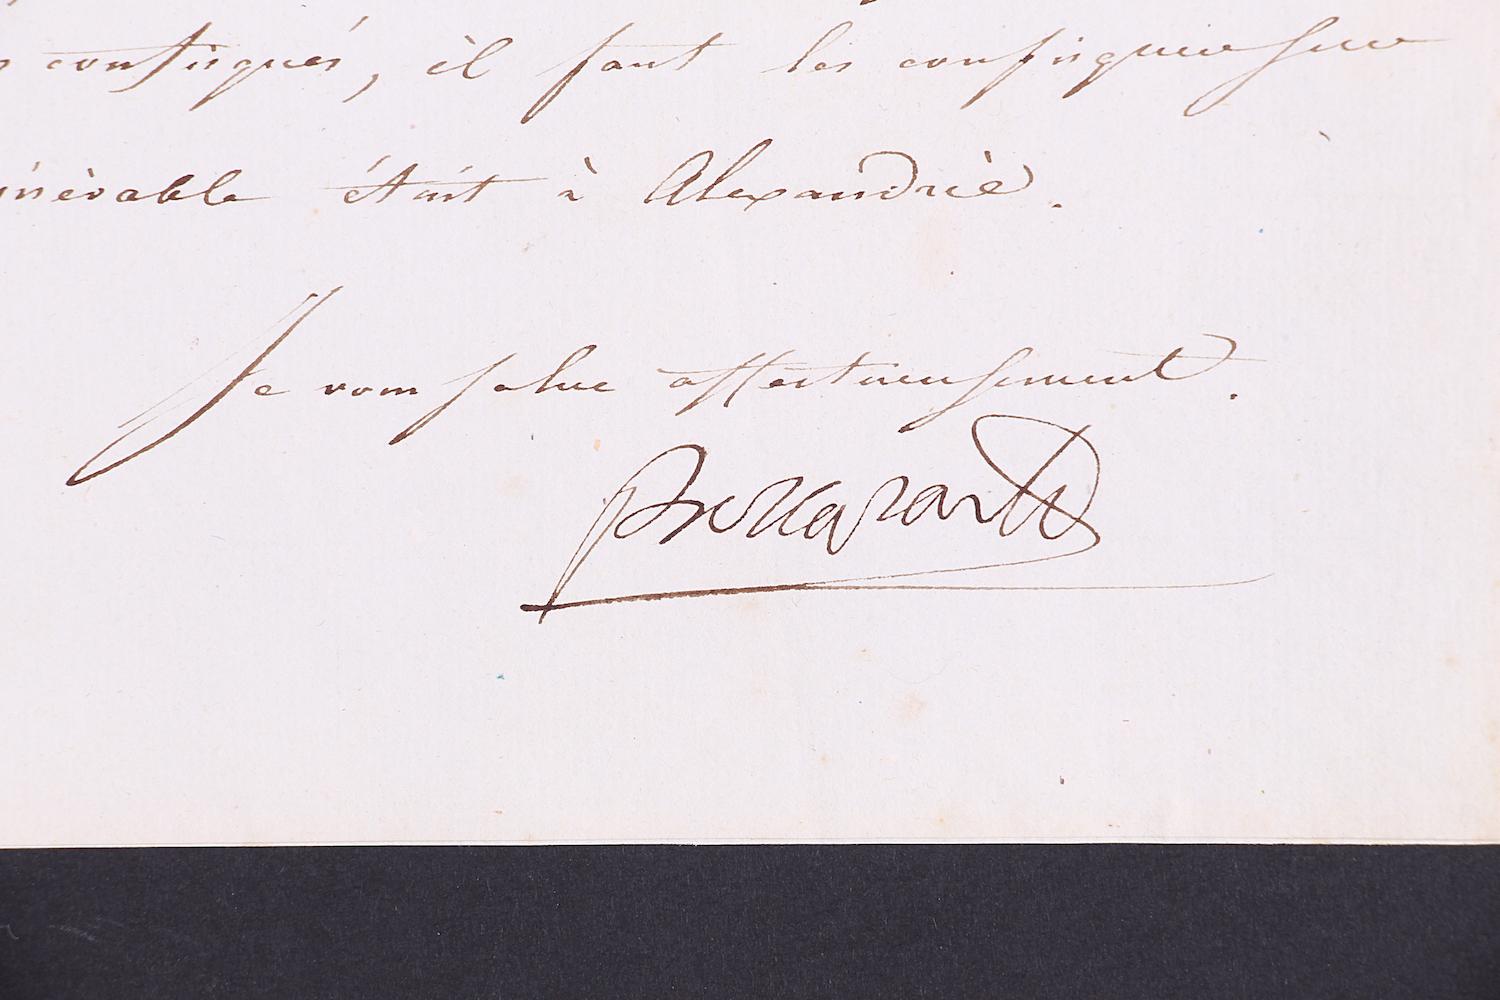 confisqués, il faut les confisquer sur
était à Alexandrie.
Je vous salue affectueusement.
Bonaparte